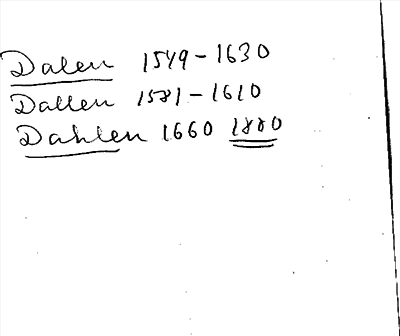 Dalen 1549-1630
Dallen 1581-1610
Dahlen 1660 1880